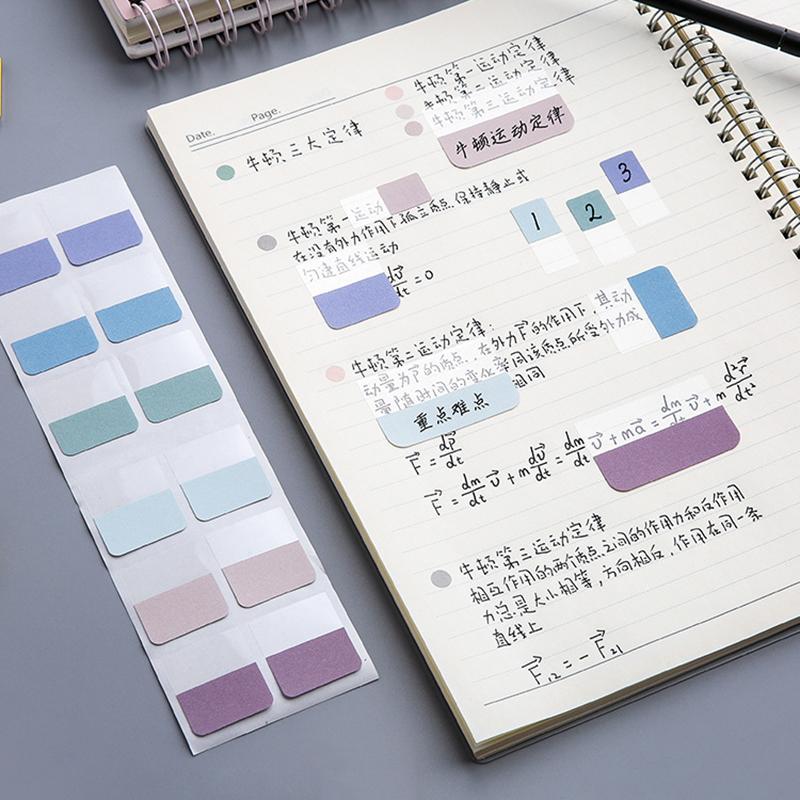 Date.
Page.
牛顿第一运动定律
牛顿第二运动定律
牛顿第三运动定律
牛顿运动定律
牛顿三大定律
1
2
3
牛顿第一运动
在没有外力作用下孤立质点保持静止或
匀速直线运动
dv⃗/dt = 0
牛顿第二运动定律:
动量为P⃗的质点,在外力F⃗的作用下,其动
量随时间的变化率同该质点所受外力成
相同
重点难点
F⃗ = dP⃗/dt
F⃗ = dm/dt v⃗ + m dv⃗/dt = dm/dt v⃗ + ma⃗ = dm/dt v⃗ + m d²r⃗/dt²
牛顿第三运动定律
相互作用的两个质点之间的作用力和反作用
力总是大小相等,方向相反,作用在同一条
直线上
F⃗₁₂ = -F⃗₂₁